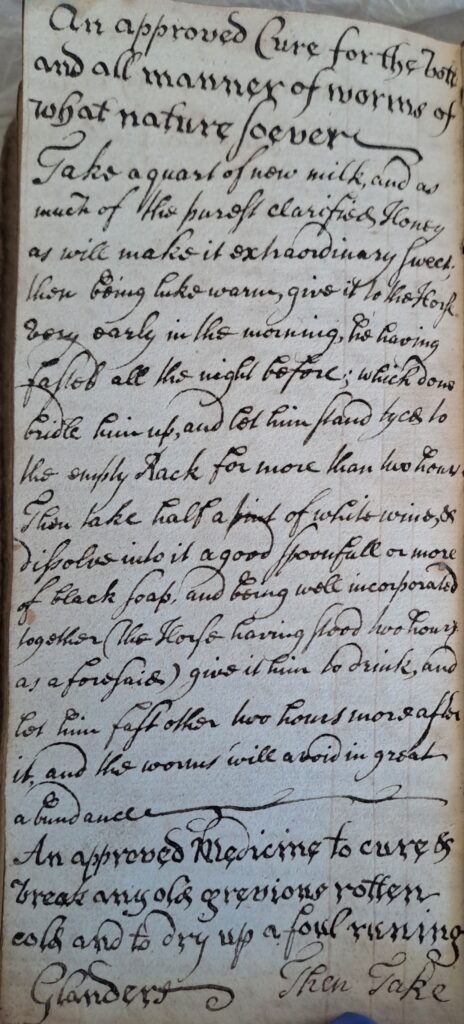 An approved Cure for the Bots
and all manner of worms of
what nature soever
Take a quart of new milk, and as
much of the purest clarified Honey
as will make it extraordinary sweet.
then being luke warm, give it to the Horse
very early in the morning, he having
fasted all the night before; which done
bridle him up, and let him stand tyed to
the empty Rack for more than two hours
Then take half a pint of white wine, &
dissolve into it a good spoonfull or more
of black soap, and being well incorporated
together (the Horse having stood two hours
as aforesaid) give it him to drink, and
let him fast other two hours more after
it, and the worms will avoid in great
abundance
An approved Medicine to cure &
break any old grevious rotten
cold and to dry up a foul runing
Glanders Then Take